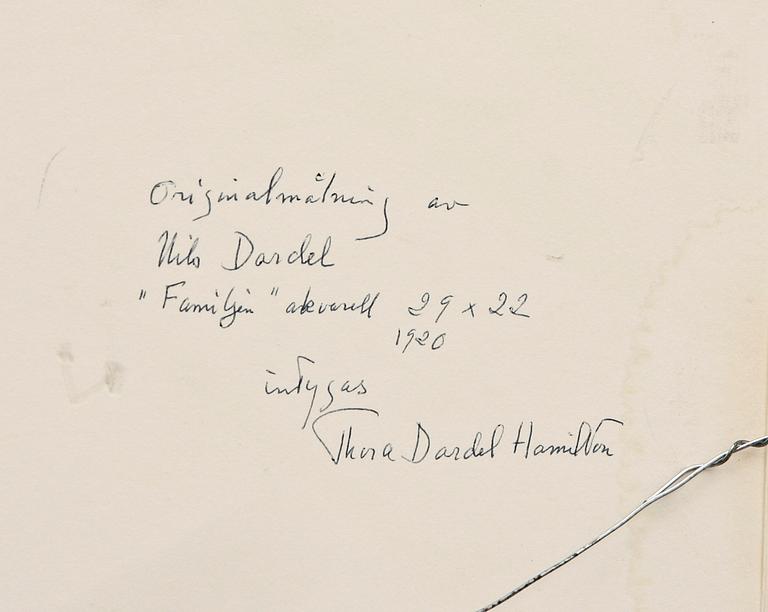 Originalmålning av
Nils Dardel
"Familjen" akvarell 29 x 22
1920
intygas
Thora Dardel Hamilton